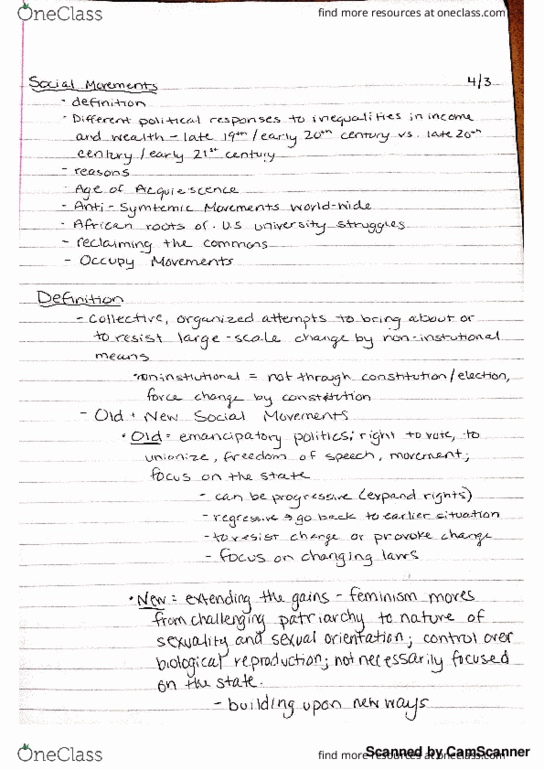 OneClass
find more resources at oneclass.com
Social Movements 4/3
- definition
- Different political responses to inequalities in income
and wealth - late 19th / early 20th century vs. late 20th
century / early 21st century
- reasons
Age of Acquiescence
- Anti-Symtemic Movements world-wide
- African roots of U.S university struggles
- reclaiming the commons
- Occupy Movements
Definition
- Collective, organized attempts to bring about or
to resist large-scale change by non-instutional
means
noninstiutional = not through constitution/election,
force change by constitution
- Old + New Social Movements
• Old = emancipatory politics; right to vote, to
unionize, freedom of speech, movement;
focus on the state
- can be progressive (expand rights)
- regressive → go back to earlier situation
- to resist change or provoke change
- focus on changing laws
• New = extending the gains - feminism moves
from challenging patriarchy to nature of
sexuality and sexual orientation; control over
biological reproduction; not necessarily focused
on the state.
- building upon new ways
OneClass
find more resources at oneclass.com
Scanned by CamScanner